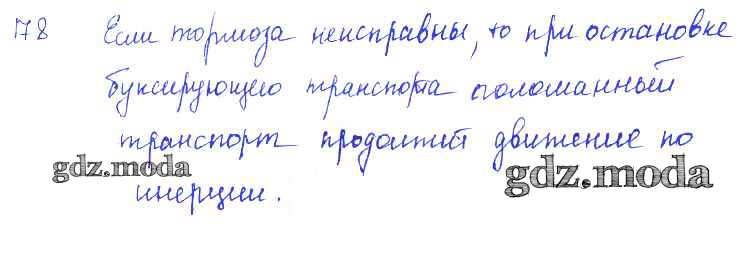 178 Если тормоза неисправны, то при остановке
буксирующего транспорта поломанный
транспорт продолжит движение по
gdz.moda
инерции.
gdz.moda